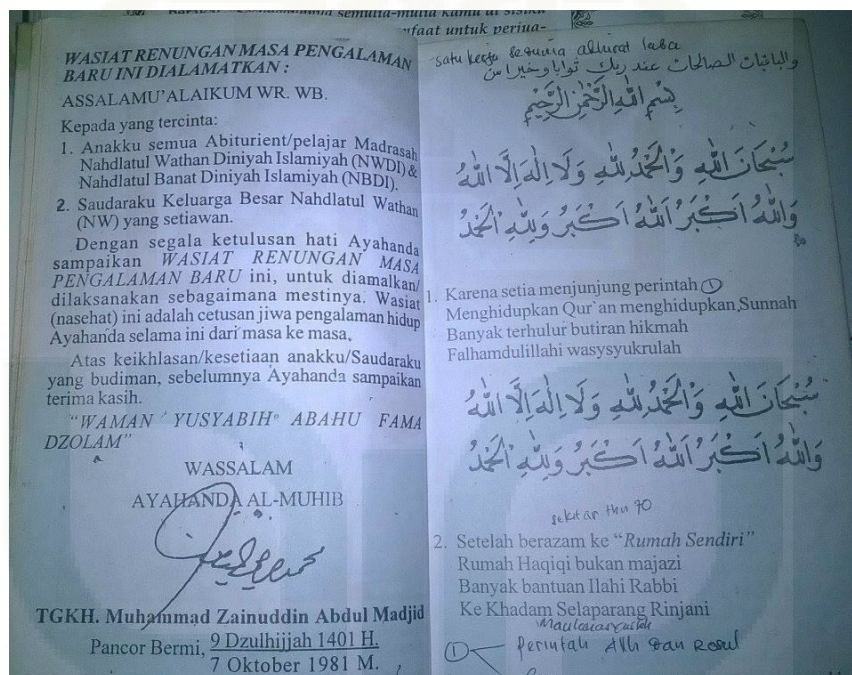 semulia-mulia kamu di sisiku
WASIAT RENUNGAN MASA PENGALAMAN
BARU INI DIALAMATKAN :
ASSALAMU'ALAIKUM WR. WB.
Kepada yang tercinta:
1. Anakku semua Abiturient/pelajar Madrasah
Nahdlatul Wathan Diniyah Islamiyah (NWDI) &
Nahdlatul Banat Diniyah Islamiyah (NBDI).
2. Saudaraku Keluarga Besar Nahdlatul Wathan
(NW) yang setiawan.
Dengan segala ketulusan hati Ayahanda
sampaikan WASIAT RENUNGAN MASA
PENGALAMAN BARU ini, untuk diamalkan/
dilaksanakan sebagaimana mestinya. Wasiat
(nasehat) ini adalah cetusan jiwa pengalaman hidup
Ayahanda selama ini dari masa ke masa.
Atas keikhlasan/kesetiaan anakku/Saudaraku
yang budiman, sebelumnya Ayahanda sampaikan
terima kasih.
"WAMAN YUSYABIH ABAHU FAMA
DZOLAM"
WASSALAM
AYAHANDA AL-MUHIB
TGKH. Muhammad Zainuddin Abdul Madjid
Pancor Bermi, 9 Dzulhijjah 1401 H.
7 Oktober 1981 M.
untuk perjua-
satu kerja
والباقيات الصالحات عند ربك ثوابا وخير
بِسْمِ اللهِ الرَّحْمٰنِ الرَّحِيْمِ
سُبْحَانَ اللهِ وَالْحَمْدُ لِلّٰهِ وَلَا اِلٰهَ اِلَّا اللهُ
وَاللهُ اَكْبَرُ اَللهُ اَكْبَرُ وَلِلّٰهِ الْحَمْدُ
1. Karena setia menjunjung perintah ①
Menghidupkan Qur`an menghidupkan Sunnah
Banyak terhulur butiran hikmah
Falhamdulillahi wasysyukrulah
سُبْحَانَ اللهِ وَالْحَمْدُ لِلّٰهِ وَلَا اِلٰهَ اِلَّا اللهُ
وَاللهُ اَكْبَرُ اَللهُ اَكْبَرُ وَلِلّٰهِ الْحَمْدُ
sekitar thn 70
2. Setelah berazam ke "Rumah Sendiri"
Rumah Haqiqi bukan majazi
Banyak bantuan Ilahi Rabbi
Ke Khadam Selaparang Rinjani
① Perintah Allh dan Rosul